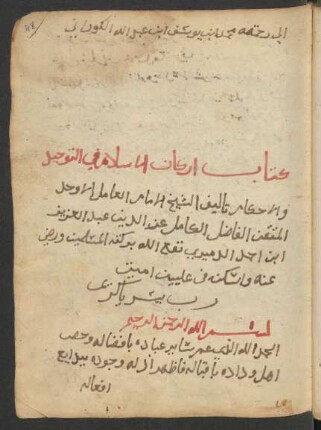 الى رحمته محمد بن يوسف ابن عبد الله الكوراني
كتاب اركان الاسلام في التوحيد
والاحكام تاليف الشيخ الامام العامل الاوحد
المتقن الفاضل الكامل عز الدين عبد العزيز
ابن احمد الدميري نفع الله ببركته المسلمين ورضي
عنه واسكنه في عليين امين
رب يسر يا كريم
بسم الله الرحمن الرحيم
الحمد لله الذي عم سائر عباده بافضاله وخص
اهل وداده باقباله فاظهر ادلة وجوده ببدايع
افعاله